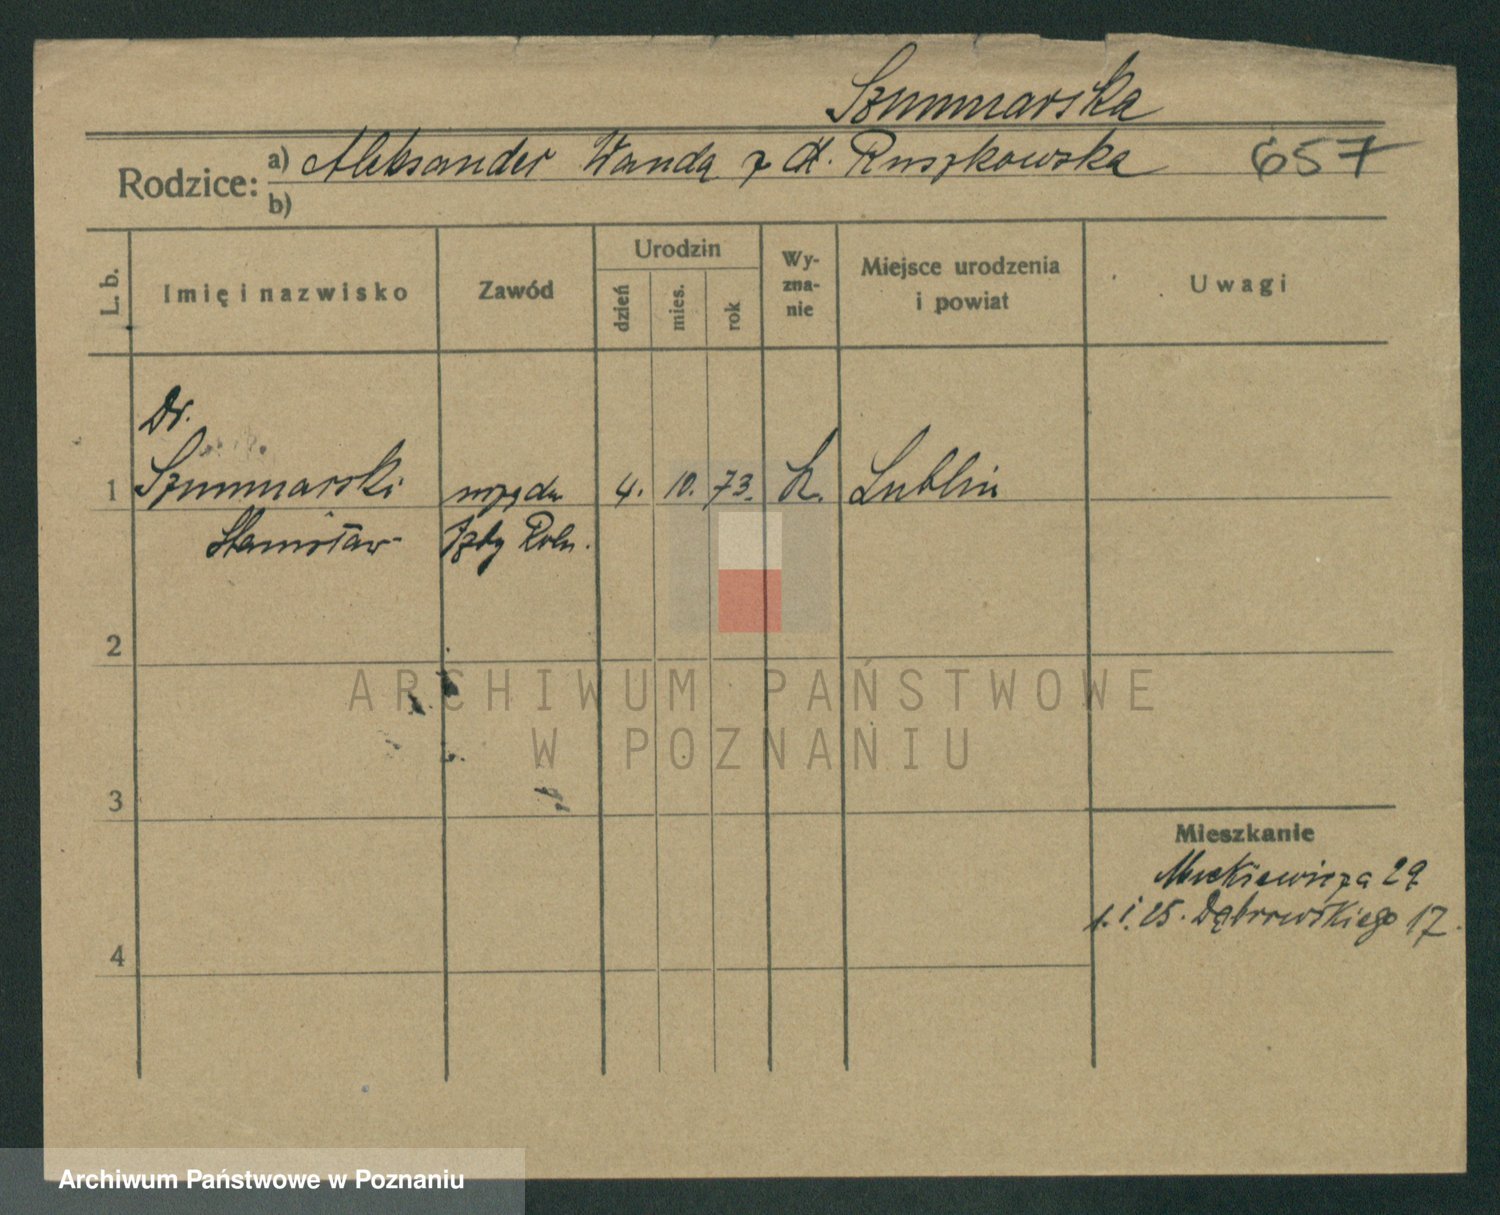 Szummarska
Rodzice: a) Aleksander Wanda z d. Ruszkowska 657
b)
L. b. Imię i nazwisko Zawód Urodzin dzień mies. rok Wy-zna-nie Miejsce urodzenia i powiat Uwagi
Dr.
1 Szummarski 4. 10. 73. k. Lublin
Stanisław Izby Roln.
2
3
4
Mieszkanie
Mickiewicza 29
1. I. 25. Dąbrowskiego 17.
ARCHIWUM PAŃSTWOWE
W POZNANIU
Archiwum Państwowe w Poznaniu